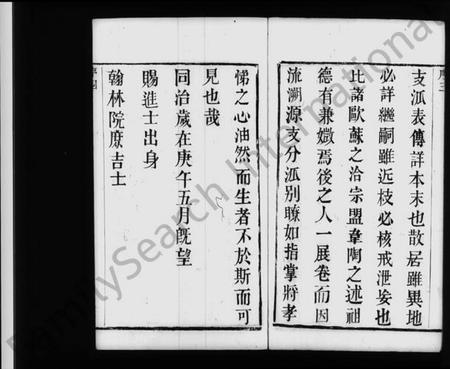 支派表傳詳本末也散居雖異地
必詳繼嗣雖近枝必核戒泄娭也
比諸歐蘇之洽宗盟韋陶之述祖
德有兼媺焉後之人一展卷而因
流溯源支分派別瞭如指掌將孝
悌之心油然而生者不於斯而可
見也哉
同治歲在庚午五月旣望
賜進士出身
翰林院庶吉士
FamilySearch International